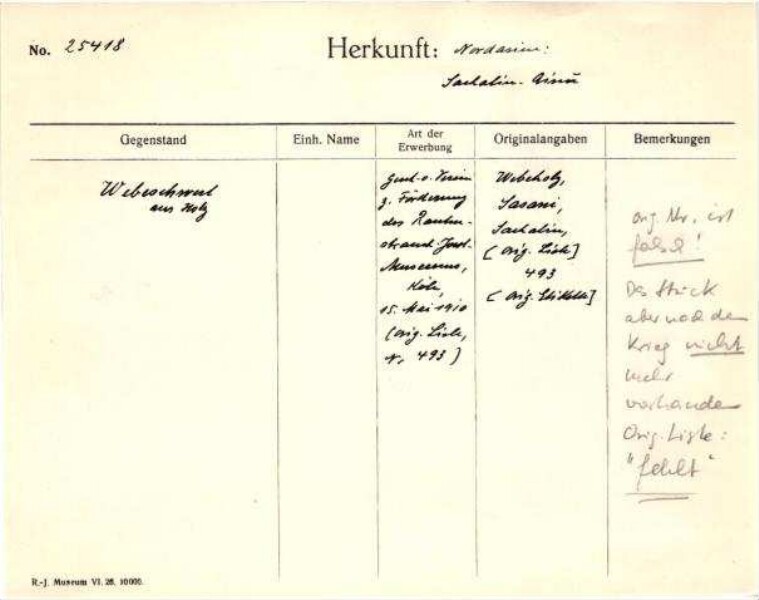 No. 25418
Herkunft: Nordasien:
Sachalin-Ainu
Gegenstand
Einh. Name
Art der
Erwerbung
Originalangaben
Bemerkungen
Webeschwert
aus Holz
Gesch. v. Verein
z. Förderung
des Rauten-
strauch-Joest-
Museums,
Köln,
15. Mai 1910
(Orig. Liste,
N. 493)
Webeholz,
Sasani,
Sachalin,
(Orig. Liste]
493
(Orig. Etikette]
orig. Nr. ist
falsch!
Das Stück
aber nach dem
Krieg nicht
mehr
vorhanden
Orig. Liste:
"fehlt"
R.-J. Museum VI. 26. 10000.